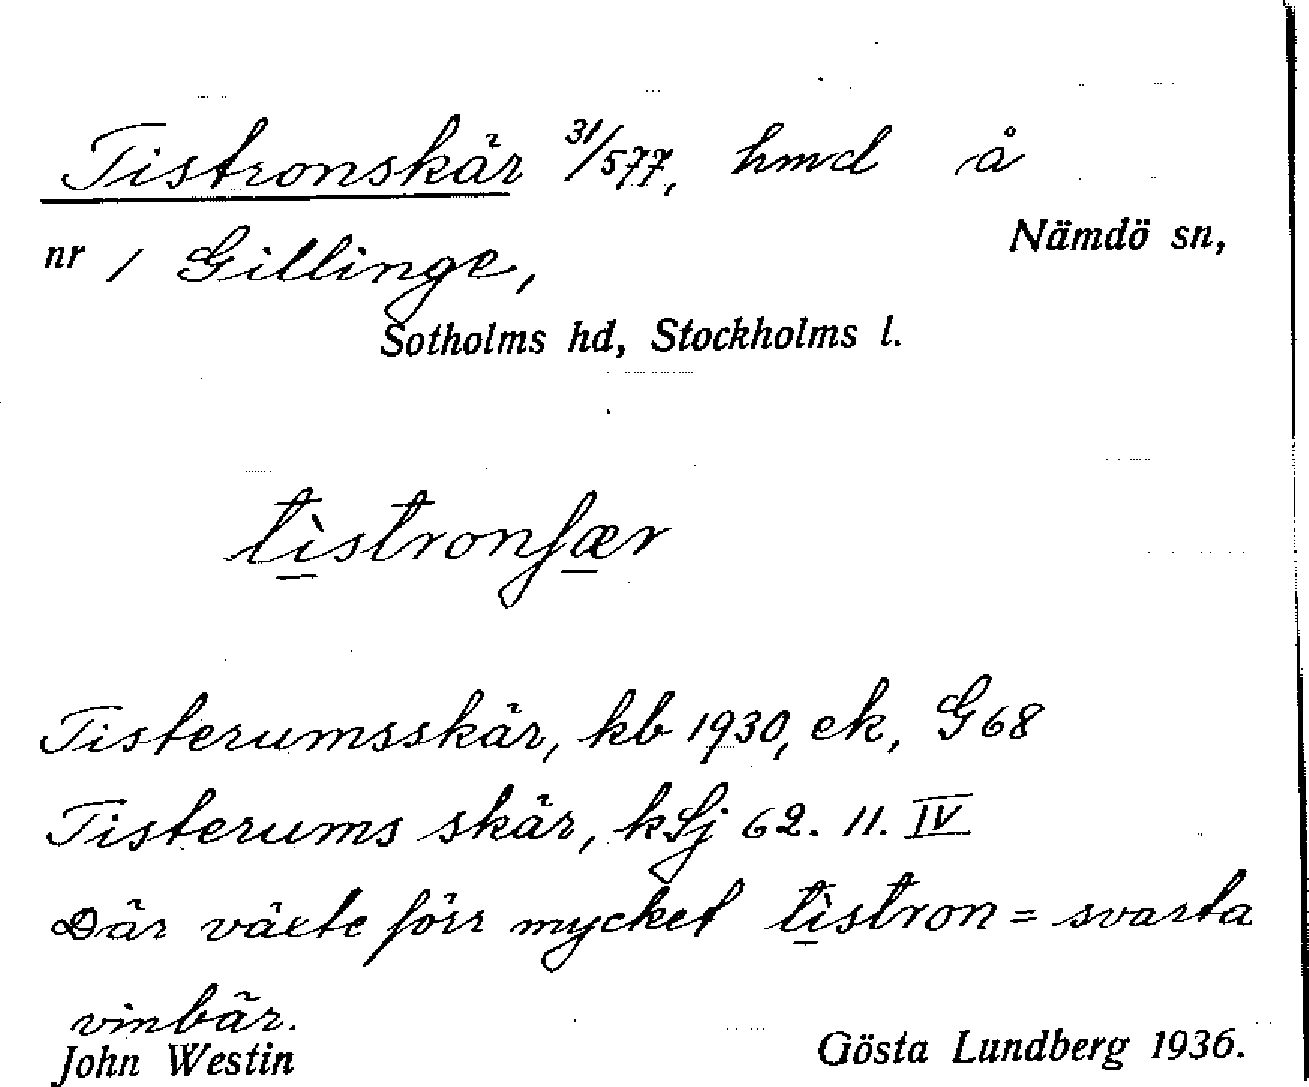 Tistronskär 31/577, hmd å
Nämdö sn,
nr 1 Gillinge,
Sotholms hd, Stockholms l.
tìstronʃær
Tisterumsskär, kb 1930, ek, G68
Tisterums skär, kSj 62. 11. IV
Där växte förr mycket tìstron = svarta
vinbär.
John Westin Gösta Lundberg 1936.